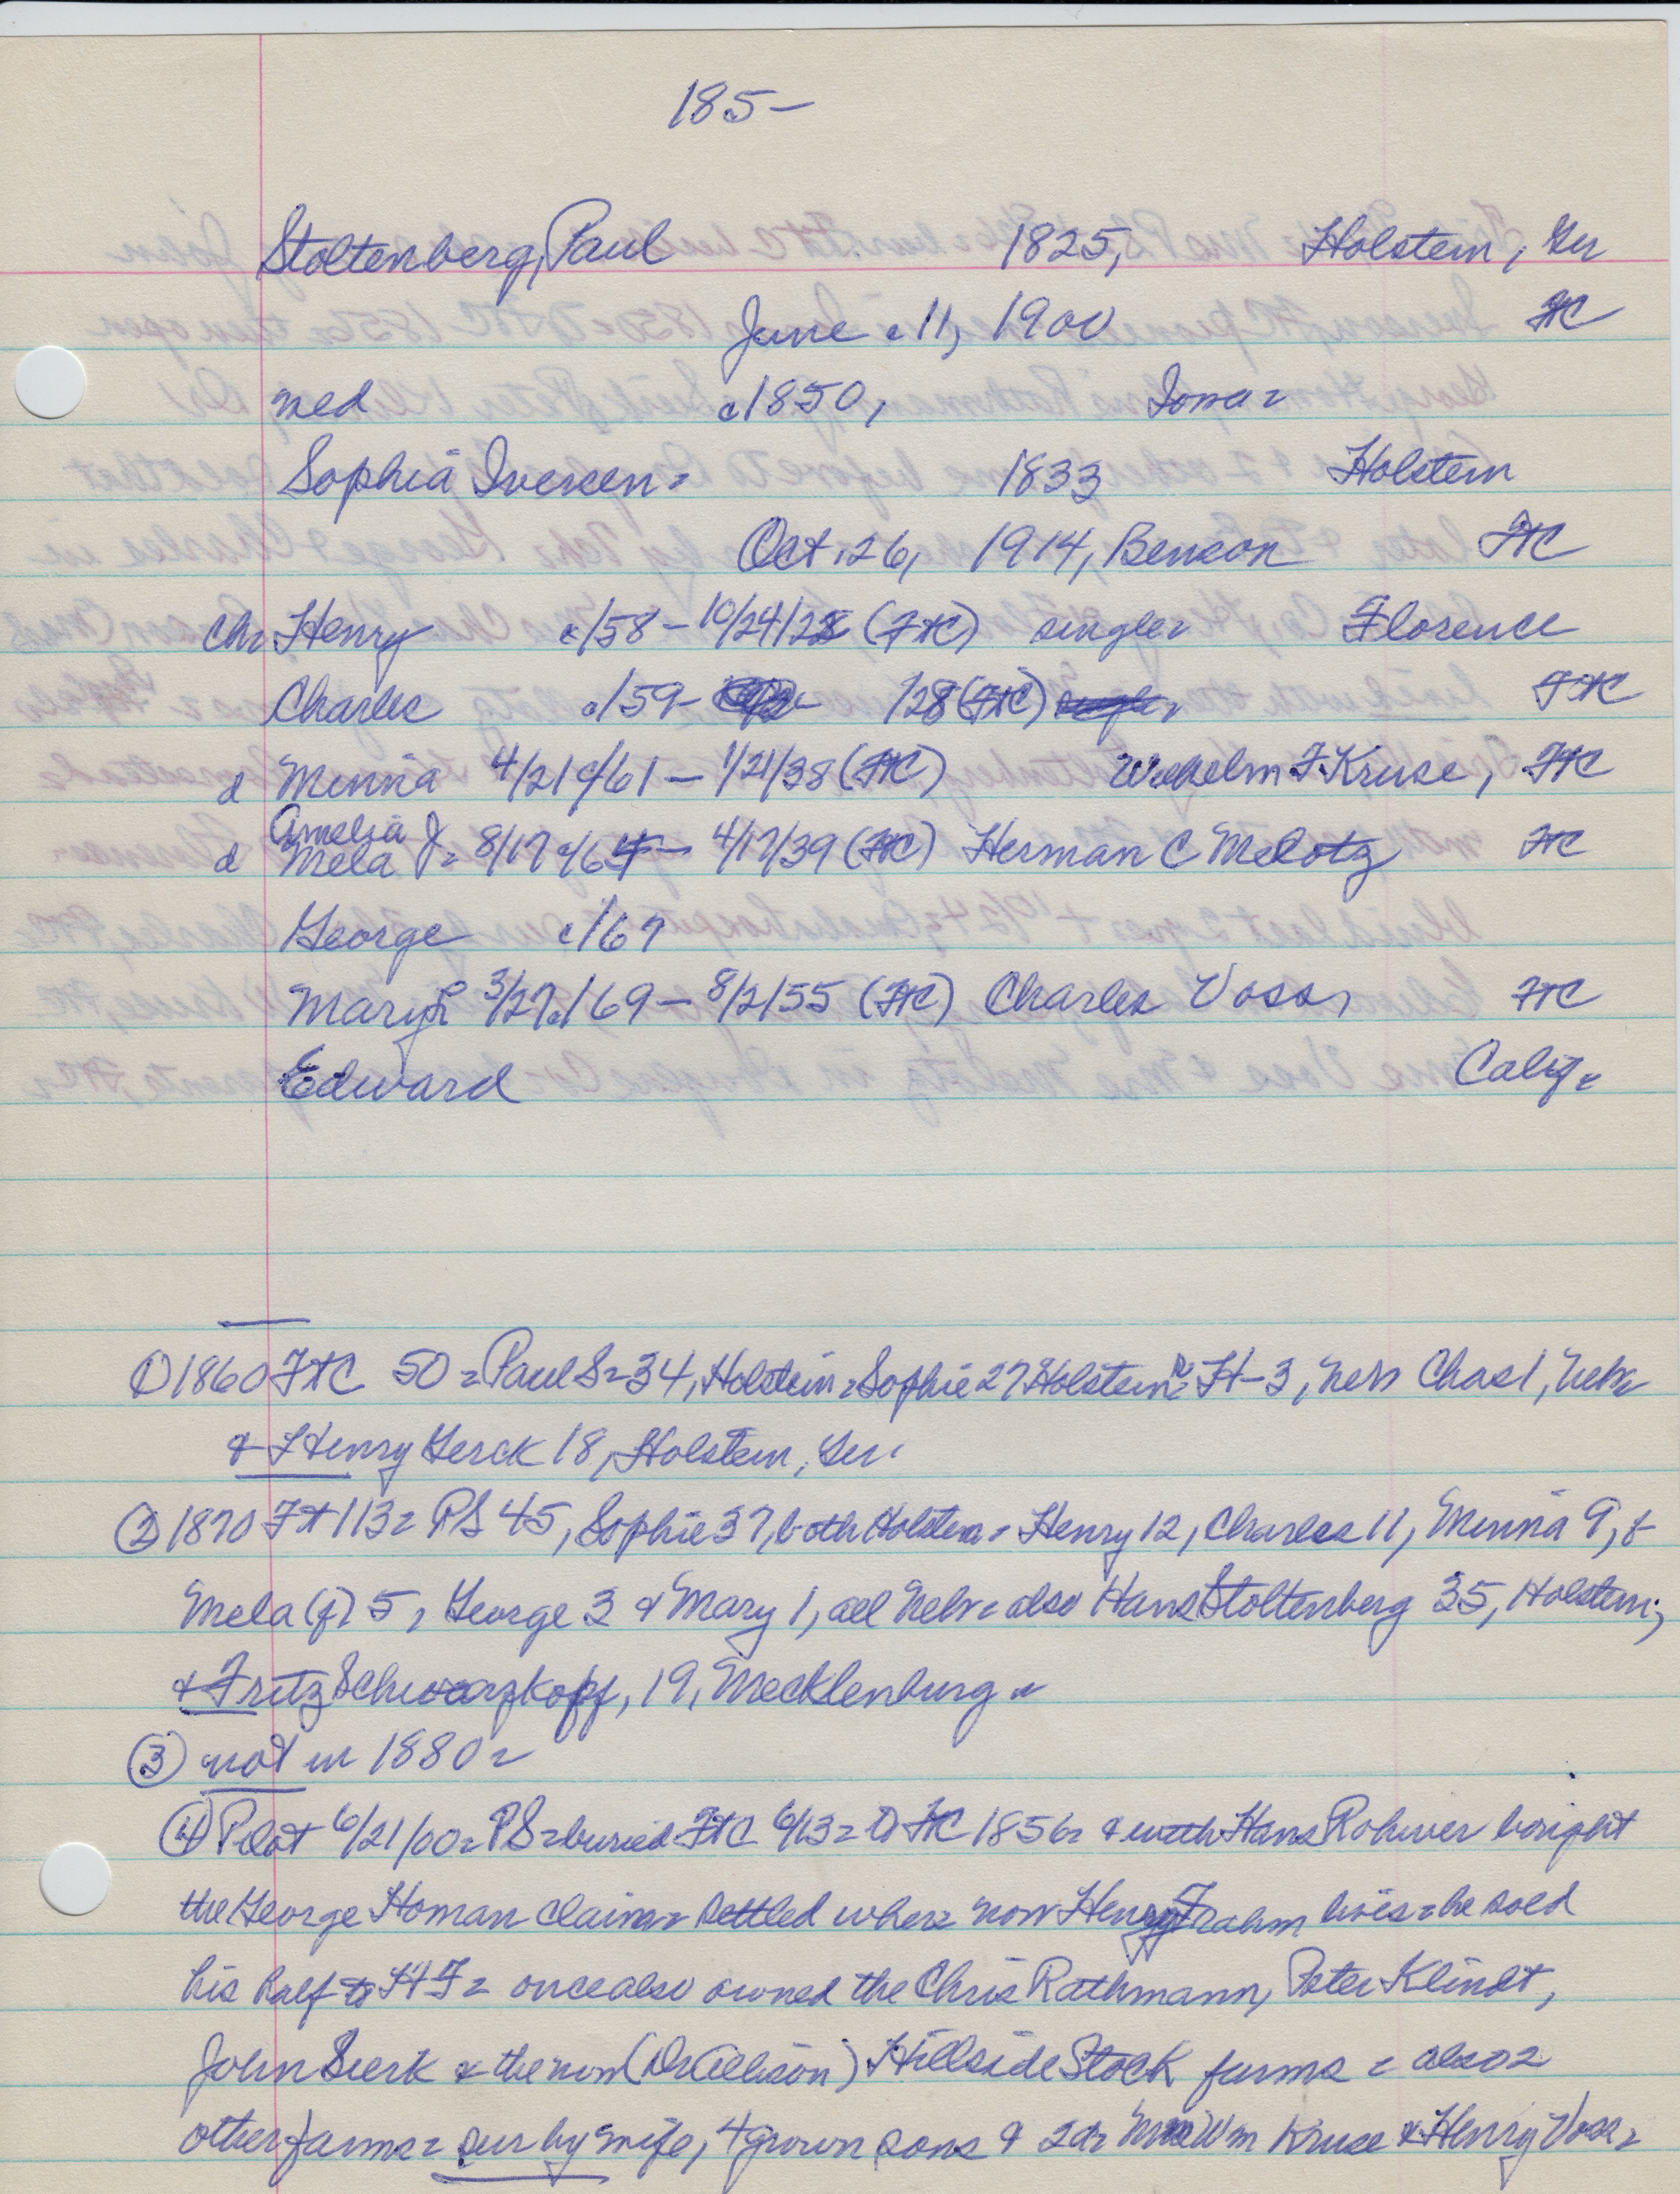 185-
Stoltenberg, Paul 1825, Holstein, Ger
June 11, 1900 FtC
med c1850, Iowa
Sophia Iversen 1833 Holstein
Oct. 26, 1914, Benson FtC
Chr Henry c/58 - 10/24/28 (FtC) single Florence
Charles c/59 - /28 (FtC) FtC
d Minna 4/21 c/61 - 1/21/38 (FtC) Wilhelm F. Kruse, FtC
Amelia J
d Mela 8/17 c/64 - 4/17/39 (FtC) Herman C Melotz FtC
George c/67
Mary L 3/27 /69 - 8/2/55 (FtC) Charles Voss, FtC
Edward Calif.
① 1860 FtC 50 = Paul S = 34, Holstein = Sophie 27 Holstein = H-3, Neb Chas 1, Neb
& Henry Gerck 18, Holstein, Ger.
② 1870 Ft 113 = PS 45, Sophie 37, both Holstein = Henry 12, Charles 11, Minna 9, &
Mela (f) 5, George 3 & Mary 1, all Neb = also Hans Stoltenberg 35, Holstein;
& Fritz Schwarzkopf, 19, Mecklenburg
③ not in 1880
④ Pilot 6/21/00 = PS = buried FtC 6/13 = FtC 1856 = & with Hans Rohwer bought
the George Homan claim = settled where now Henry Frahm lives = he sold
his half to HF = once also owned the Chris Rathmann, Peter Klindt,
John Sierk & the now (Dr Allison) Hillside Stock farms = also 2
other farms = sur by wife, 4 grown sons & 2 d = Wm Kruse & Henry Voss =